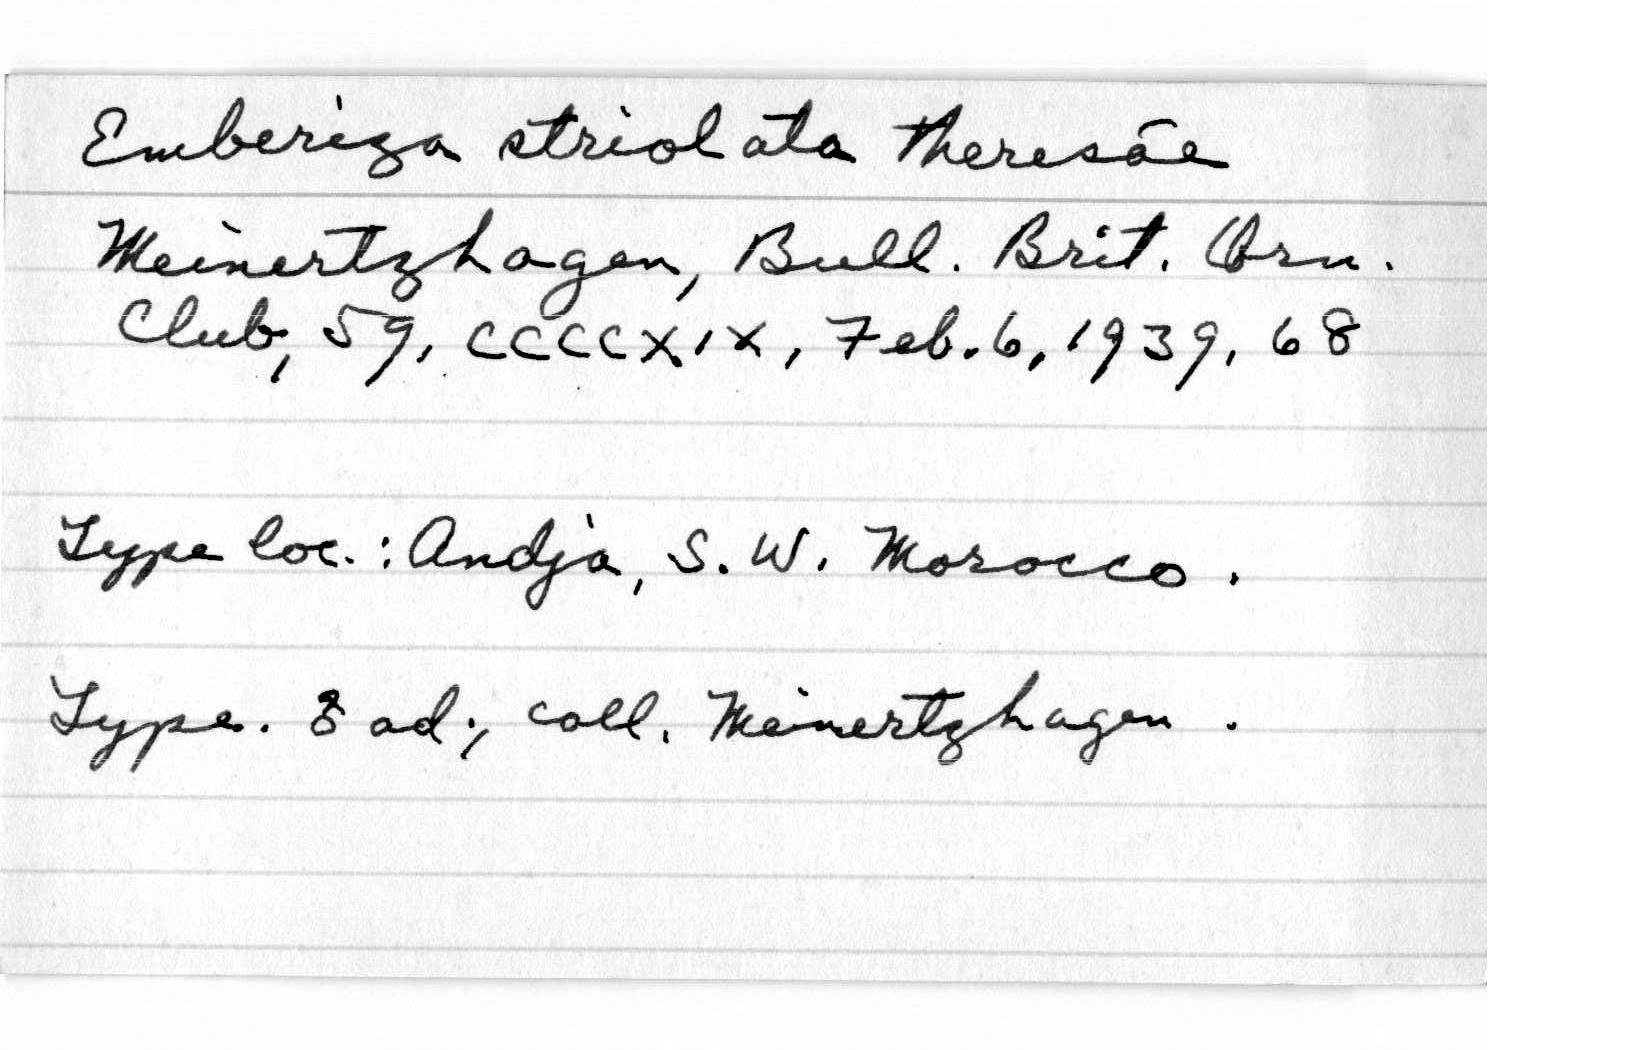 Emberiza striolata theresāe
Meinertzhagen, Bull. Brit. Orn.
Club, 59, CCCCXIX, Feb. 6, 1939, 68
Type loc.: Andja, S. W. Morocco.
Type. ♂ ad; coll. Meinertzhagen.